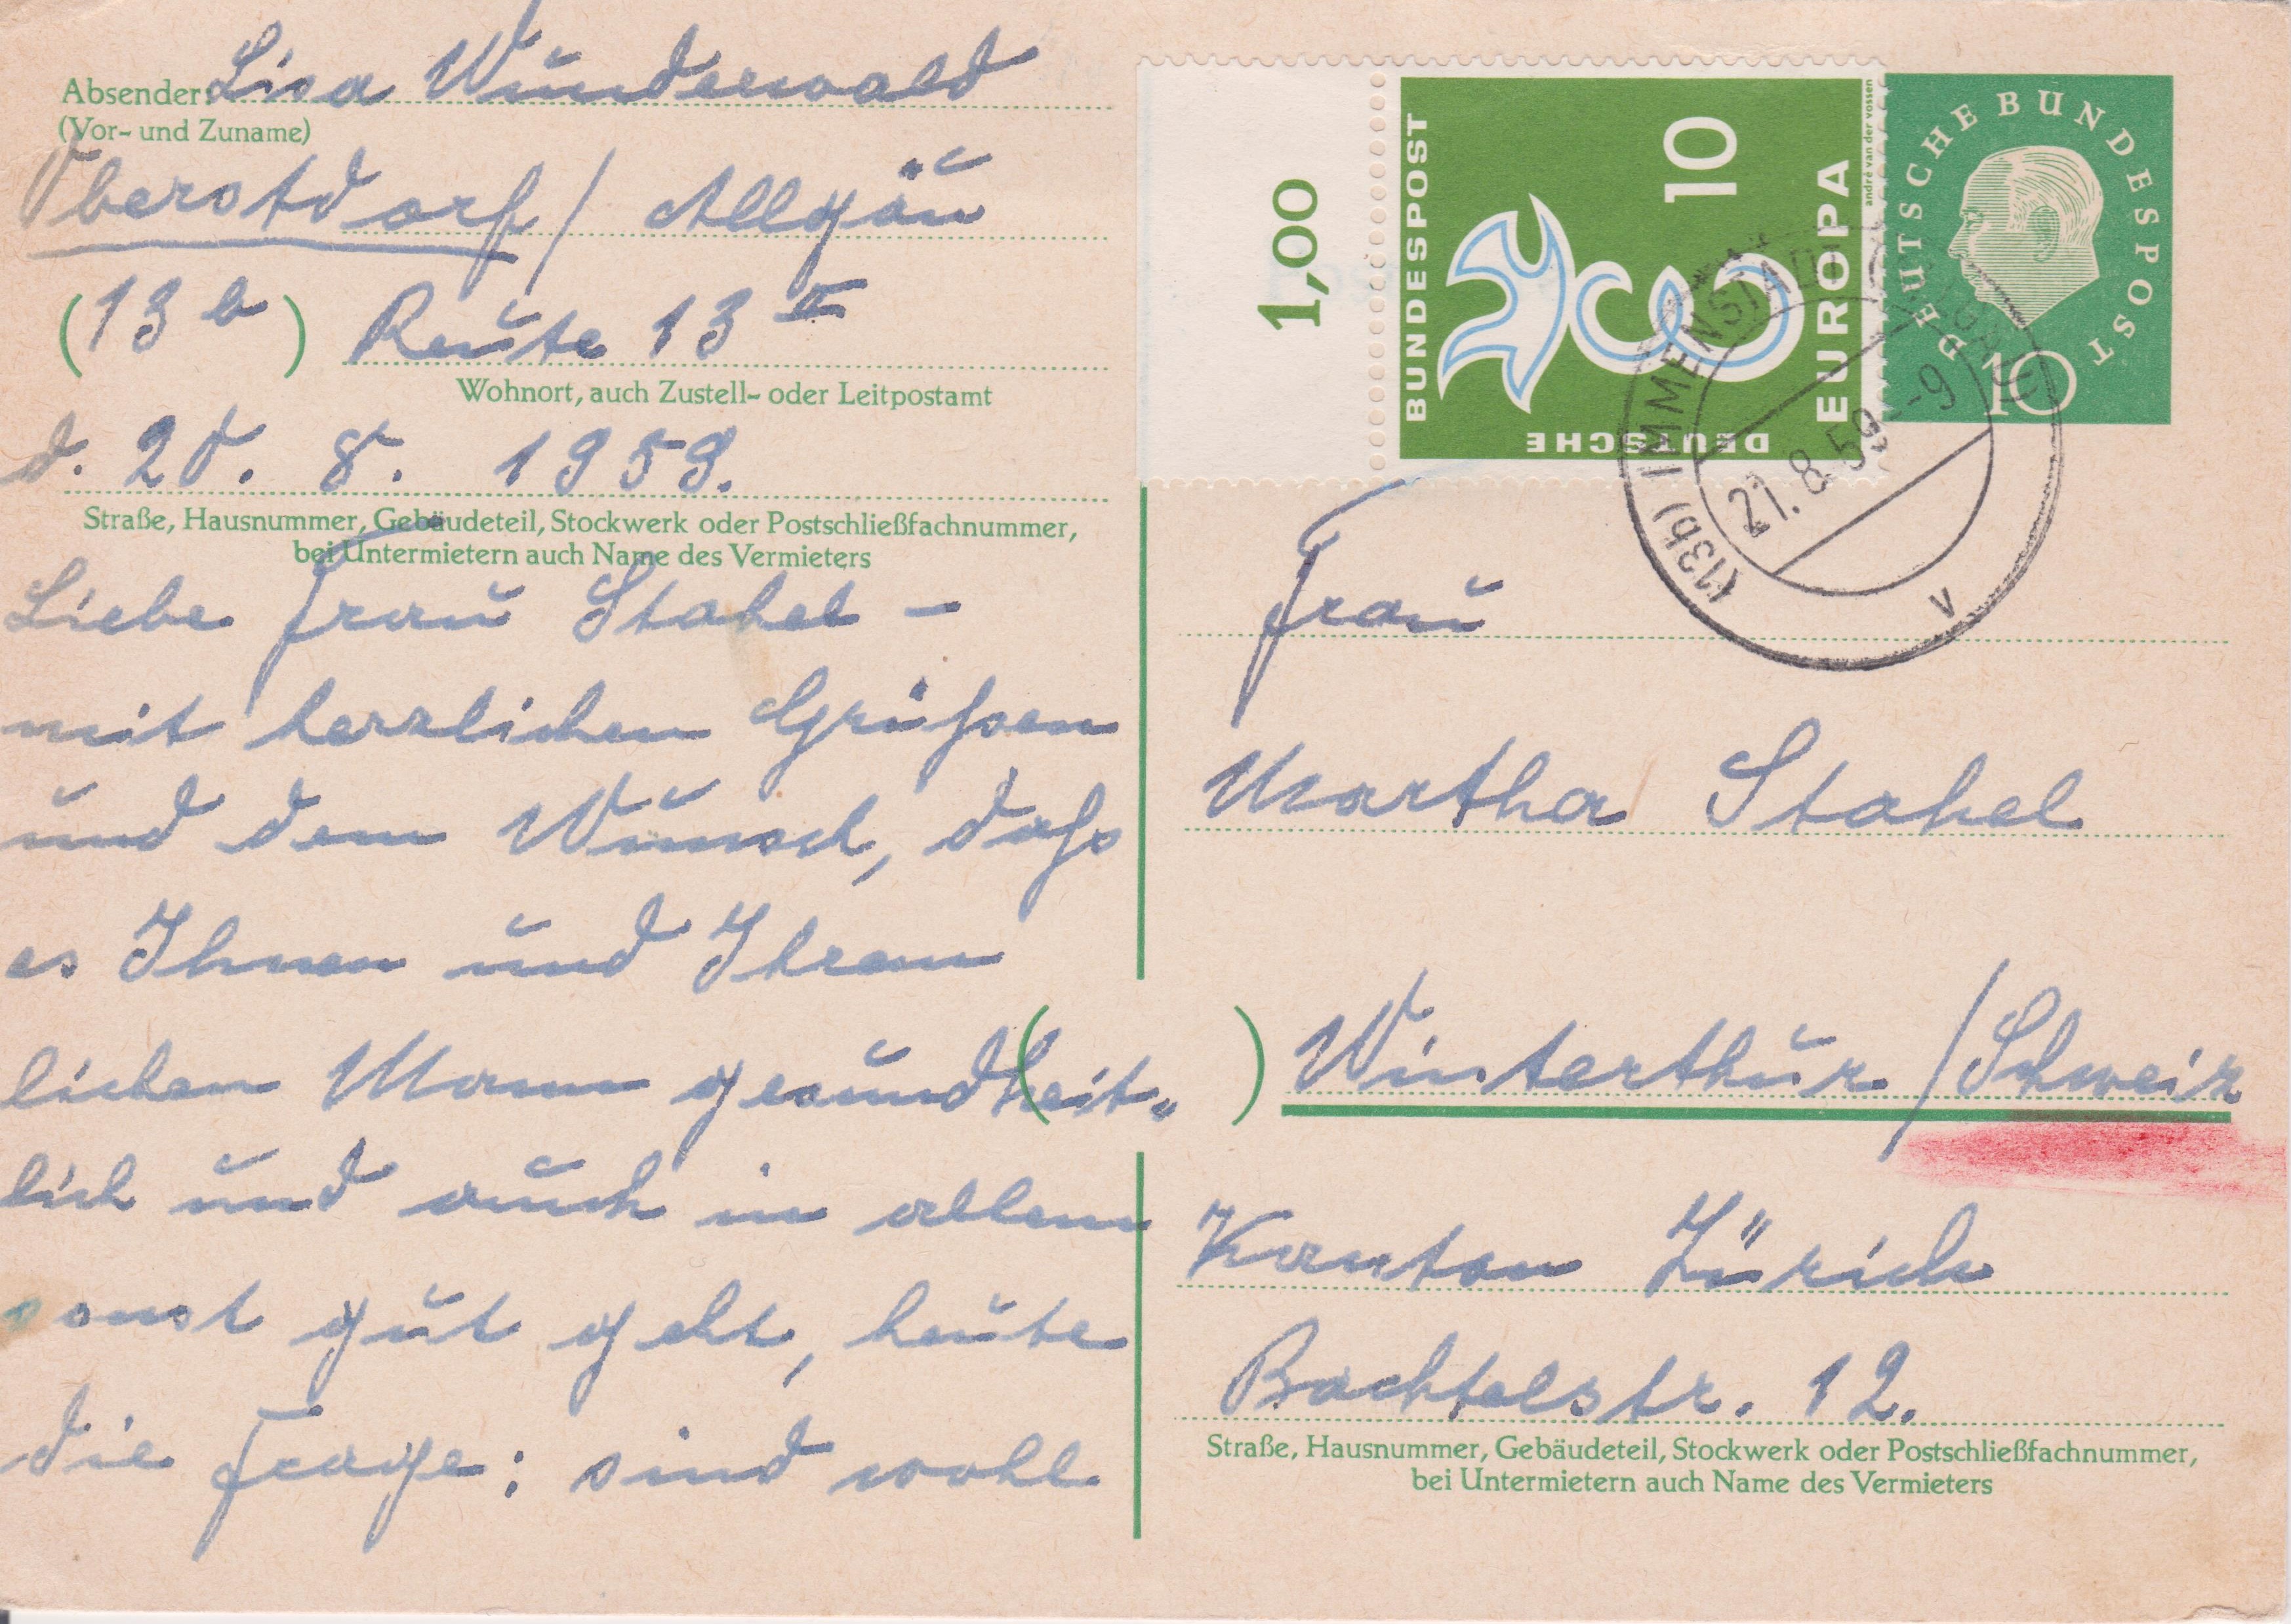 Absender: Lisa Wunderwald
(Vor- und Zuname)
Oberstdorf / Allgäu
(13b) Reute 13 II
Wohnort, auch Zustell- oder Leitpostamt
d. 20. 8. 1959.
Straße, Hausnummer, Gebäudeteil, Stockwerk oder Postschließfachnummer,
bei Untermietern auch Name des Vermieters
Liebe Frau Stahel –
mit herzlichen Grüßen
und dem Wunsch, daß
es Ihnen und Ihrem
lieben Mann gesundheit-
lich und auch in allem
sonst gut geht, heute
die Frage: sind wohl
1,00
DEUTSCHE
BUNDESPOST
10
EUROPA
andré van der vossen
DEUTSCHE BUNDESPOST
10
(13b) IMMENSTADT
21.8.59 -9
v
Frau
Martha Stahel
( ) Winterthur / Schweiz
Kanton Zürich
Bachtelstr. 12.
Straße, Hausnummer, Gebäudeteil, Stockwerk oder Postschließfachnummer,
bei Untermietern auch Name des Vermieters